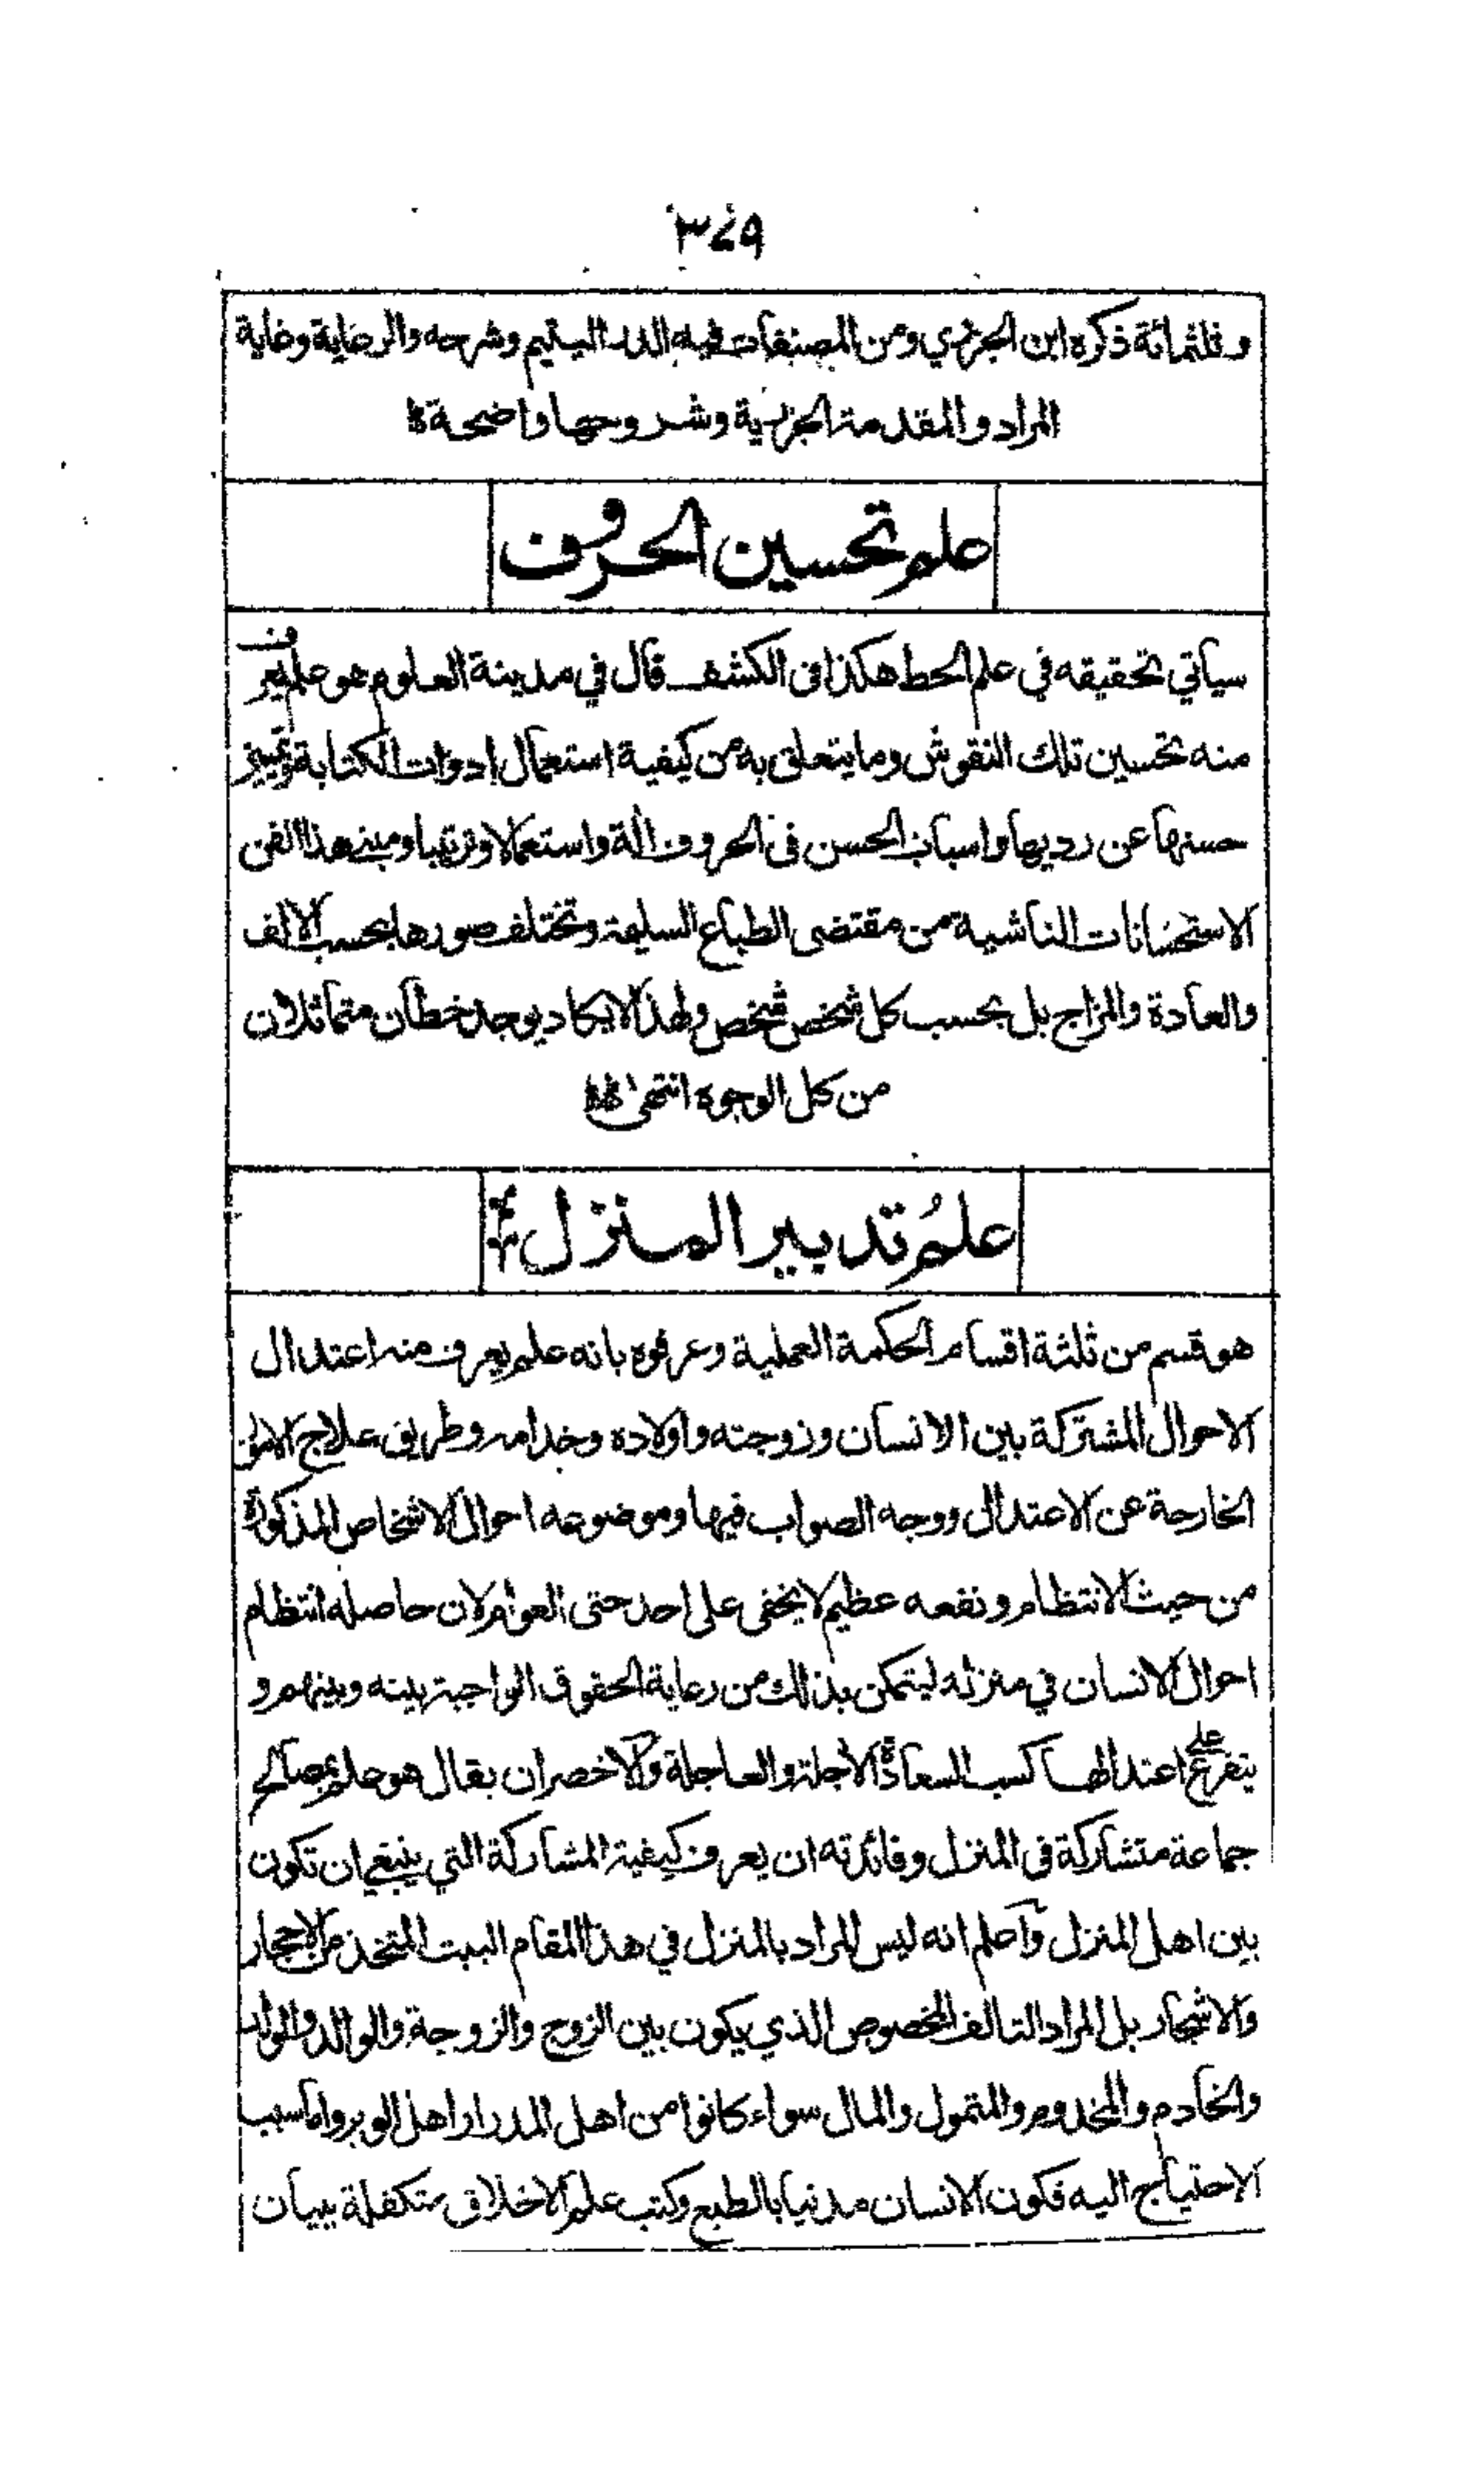 ٣٤٩
وثلثمائة ذكره ابن الجزري ومن المصنفات فيه الدر اليتيم وشرحه والرعاية وغاية
المراد والمقدمة الجزرية وشروحها واضحة
علم تحسين الحروف
سيأتي تحقيقه في علم الخط هكذا في الكشف قال في مدينة العلوم هو علم يعرف
منه تحسين تلك النقوش وما يتعلق به من كيفية استعمال ادوات الكتابة وتمييز
حسنها عن رديها واسباب الحسن في الحروف الة واستعمالا وترتيبا ومبنى هذا الفن
الاستحسانات الناشية من مقتضى الطباع السليمة وتختلف صورها بحسب الالف
والعادة والمزاج بل بحسب كل شخص شخص ولهذا لا يكاد يوجد خطان متماثلان
من كل الوجوه انتهى
علم تدبير المنزل
هو قسم من ثلثة اقسام الحكمة العملية وعرفوه بانه علم يعرف منه اعتدال
الاحوال المشتركة بين الانسان وزوجته واولاده وخدامه وطريق علاج الامور
الخارجة عن الاعتدال ووجه الصواب فيها وموضوعه احوال الاشخاص المذكورة
من حيث الانتظام ونفعه عظيم لا يخفى على احد حتى العوام لان حاصله انتظام
احوال الانسان في منزله ليتمكن بذلك من رعاية الحقوق الواجبة بينه وبينهم و
يتفرع على اعتدالها كسب السعادة الأجلة والعاجلة والاخصر ان يقال هو علم بمصالح
جماعة متشاركة في المنزل وفائدته ان يعرف كيفية المشاركة التي ينبغي ان تكون
بين اهل المنزل وأعلم انه ليس المراد بالمنزل في هذا المقام البيت المتخذ من الاحجار
والاشجار بل المراد التالف المخصوص الذي يكون بين الزوج والزوجة والوالد والولد
والخادم والمخدوم والمتمول والمال سواء كانوا من اهل المدر او اهل الوبر واما سبب
الاحتياج اليه فكون الانسان مدنيا بالطبع وكتب علم الاخلاق متكفلة ببيان